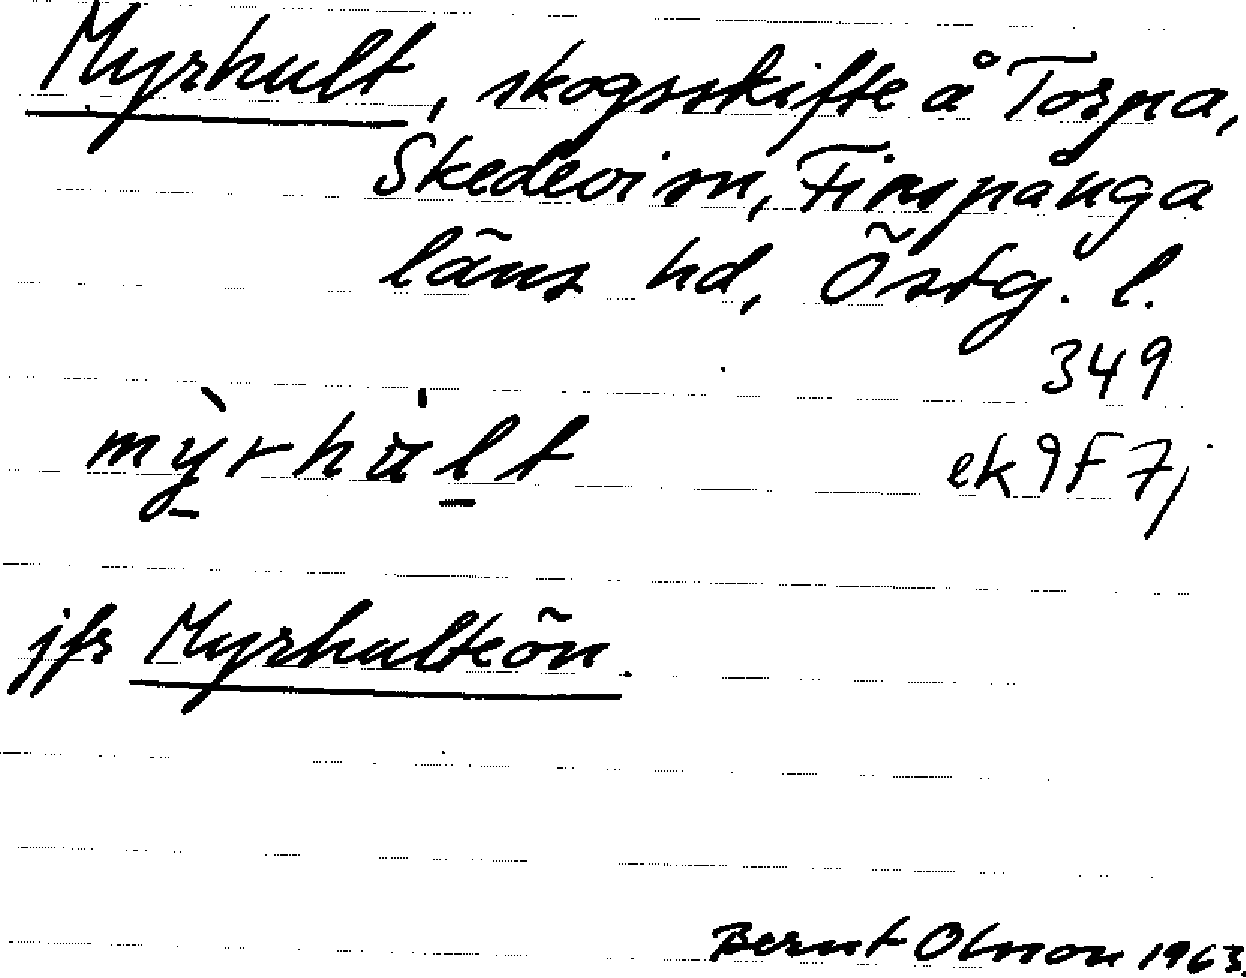 Myrhult, skogsskifte å Torpa,
Skedevi sn, Finspånga
läns hd, Östg. l.
349
mỳrhult
ek 9F7j
jfr Myrhulteön.
Bernt Olsson 1963